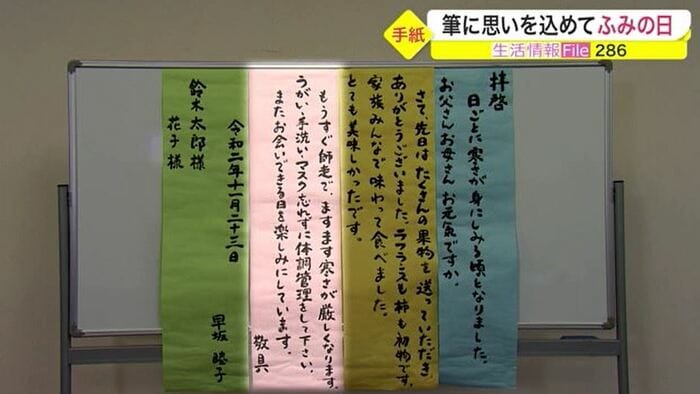 手紙
筆に思いを込めてふみの日
生活情報File 286
拝啓
日ごとに寒さが身にしみる頃となりました。
お父さんお母さん お元気ですか。
さて、先日はたくさんの果物を送っていただき
ありがとうございました。ラフランスも柿も初物です。
家族みんなで味わって食べました。
とても美味しかったです。
もうすぐ師走で、ますます寒さが厳しくなります。
うがい・手洗い・マスク忘れずに体調管理をして下さい。
またお会いできる日を楽しみにしています。
敬具
令和二年十一月二十三日
早坂 睦子
鈴木太郎様
花子様